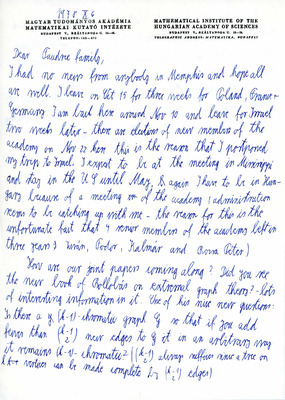 1978 X 6
MAGYAR TUDOMÁNYOS AKADÉMIA
MATEMATIKAI KUTATÓ INTÉZETE
BUDAPEST V., REÁLTANODA U. 13—15.
MATHEMATICAL INSTITUTE OF THE
HUNGARIAN ACADEMY OF SCIENCES
BUDAPEST V., REÁLTANODA U. 13—15.
TELEGRAPHIC ADDRESS: MATEMATIKA, BUDAPEST
Dear Faudree family,
I had no news from anybody in Memphis and hope all
are well. I leave on Oct 15 for three weeks for Poland, France +
Germany I am back here around Nov 10 and leave for Israel
two weeks later - there are elections of new members of the
academy on Nov 22 here this is the reason that I postponed
my trip to Israel. I expect to be at the meeting in
and stay in the U S until May, again I have to be in Hun-
gary because of a meeting of the academy (administration
seems to be catching up with me - the reason for this is the
unfortunate fact that 4 senior members of the academy left in
three years Turán, Fodor, Kalmár and Rózsa Péter)
How are our joint papers coming along? Did you see
the new book of Bollobás on extremal graph theory? - lots
of interesting information in it. One of his nice new questions:
Is there a chromatic graph G so that if you add
fewer than new edges to G it in an arbitrary way
it remains chromatic? always suffices since a tree on
vertices can be made complete by edges)